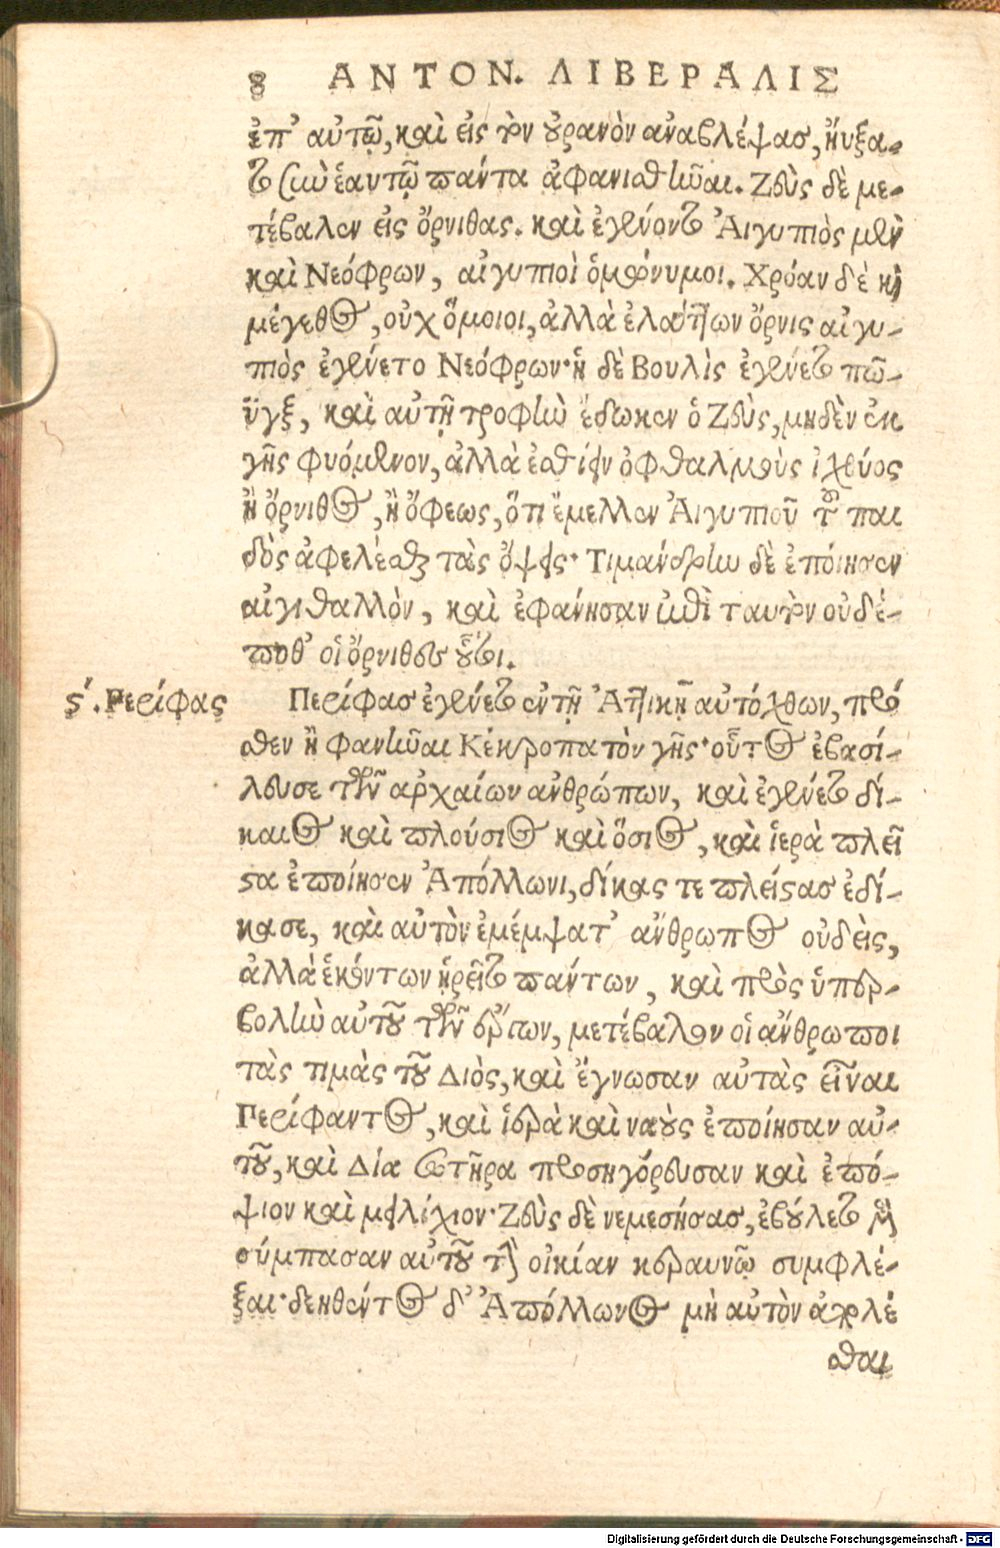 8 ΑΝΤΟΝ. ΛΙΒΕΡΑΛΙΣ
ἐπ' αὐτῷ, καὶ εἰς τὸν οὐρανὸν ἀναβλέψας, ηὔξα-
το σὺν ἑαυτῷ πάντα ἀφανισθῆναι. Ζεὺς δὲ με-
τέβαλεν εἰς ὄρνιθας. καὶ ἐγένοντο Αἰγυπιὸς μὲν
καὶ Νεόφρων, αἰγυπιοὶ ὁμώνυμοι. Χρόαν δὲ καὶ
μέγεθος, οὐχ ὅμοιοι, ἀλλὰ ἐλάττων ὄρνις αἰγυ-
πιὸς ἐγένετο Νεόφρων· ἡ δὲ Βουλὶς ἐγένετο πῶ-
ϋγξ, καὶ αὐτῇ τροφὴν ἔδωκεν ὁ Ζεὺς, μηδὲν ἐκ
γῆς φυόμενον, ἀλλὰ ἐσθίειν ὀφθαλμοὺς ἰχθύος
ἢ ὄρνιθος, ἢ ὄφεως, ὅτι ἔμελλεν Αἰγυπιοῦ τοῦ παι
δὸς ἀφελέσθαι τὰς ὄψεις· Τιμάνδρην δὲ ἐποίησεν
αἰγιθαλλὸν, καὶ ἐφάνησαν ἐπὶ ταυτὸν οὐδέ-
ποθ' οἱ ὄρνιθες οὗτοι.
ϛ'. Περίφας
Περίφας ἐγένετο ἐν τῇ Ἀττικῇ αὐτόχθων, πρό
σθεν ἢ φανῆναι Κέκροπα τὸν γῆς· οὗτος ἐβασί-
λευσε τῶν ἀρχαίων ἀνθρώπων, καὶ ἐγένετο δί-
καιος καὶ πλούσιος καὶ ὅσιος, καὶ ἱερὰ πλεῖ
στα ἐποίησεν Ἀπόλλωνι, δίκας τε πλείστας ἐδί-
κασε, καὶ αὐτὸν ἐμέμψατ' ἄνθρωπος οὐδεὶς,
ἀλλὰ ἑκόντων ἡρεῖτο πάντων, καὶ πρὸς ὑπερ-
βολὴν αὐτοῦ τῶν ἔργων, μετέβαλον οἱ ἄνθρωποι
τὰς τιμὰς τοῦ Διὸς, καὶ ἔγνωσαν αὐτὰς εἶναι
Περίφαντος, καὶ ἱερὰ καὶ ναοὺς ἐποίησαν αὐ-
τοῦ, καὶ Δία σωτῆρα προσηγόρευσαν καὶ ἐπό-
ψιον καὶ μειλίχιον· Ζεὺς δὲ νεμεσήσας, ἐβούλετο μὲν
σύμπασαν αὐτοῦ τὴν οἰκίαν κεραυνῷ συμφλέ-
ξαι· δεηθέντος δ' Ἀπόλλωνος μὴ αὐτὸν ἀπολέ
σθαι
Digitalisierung gefördert durch die Deutsche Forschungsgemeinschaft - DFG